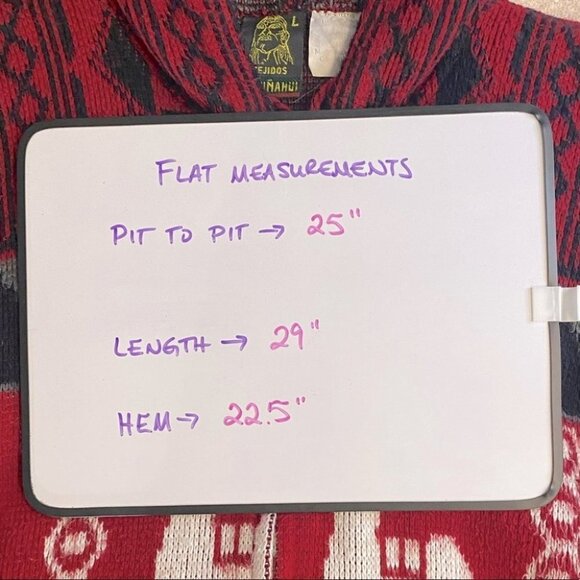 L
TEJIDOS
FLAT MEASUREMENTS
PIT TO PIT → 25"
LENGTH → 29"
HEM → 22.5"